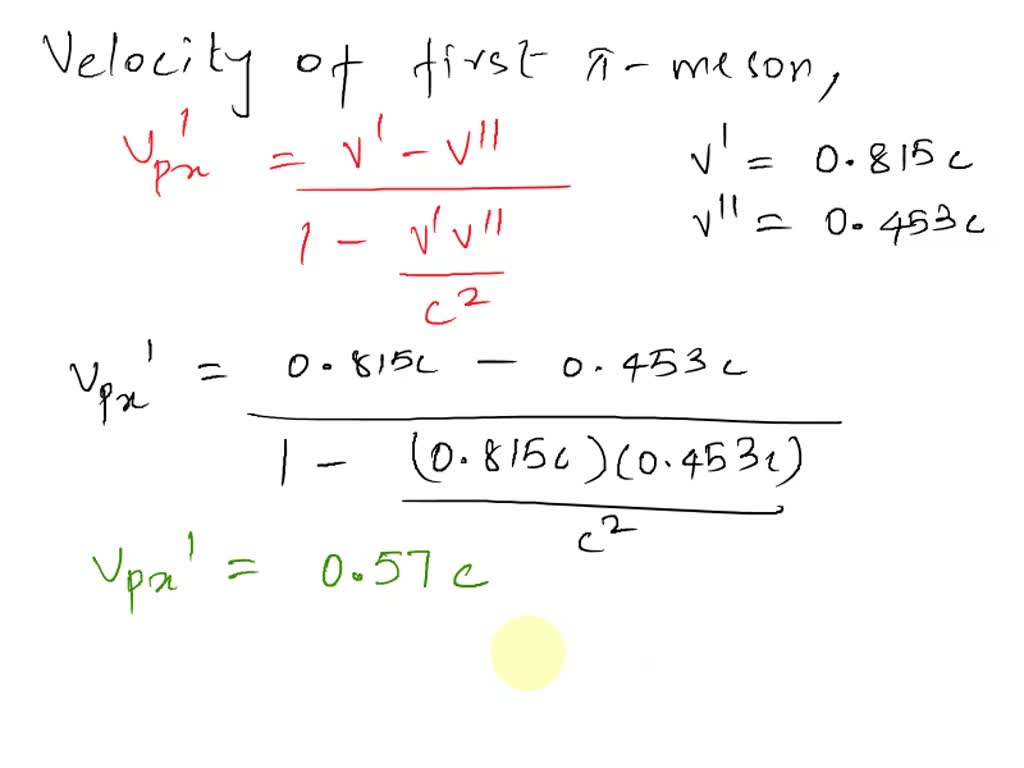 Velocity of first π-meson,
Vpx' = V' - V'' / 1 - V'V''/c²
V' = 0.815c
V'' = 0.453c
Vpx' = 0.815c - 0.453c / 1 - (0.815c)(0.453c)/c²
Vpx' = 0.57c